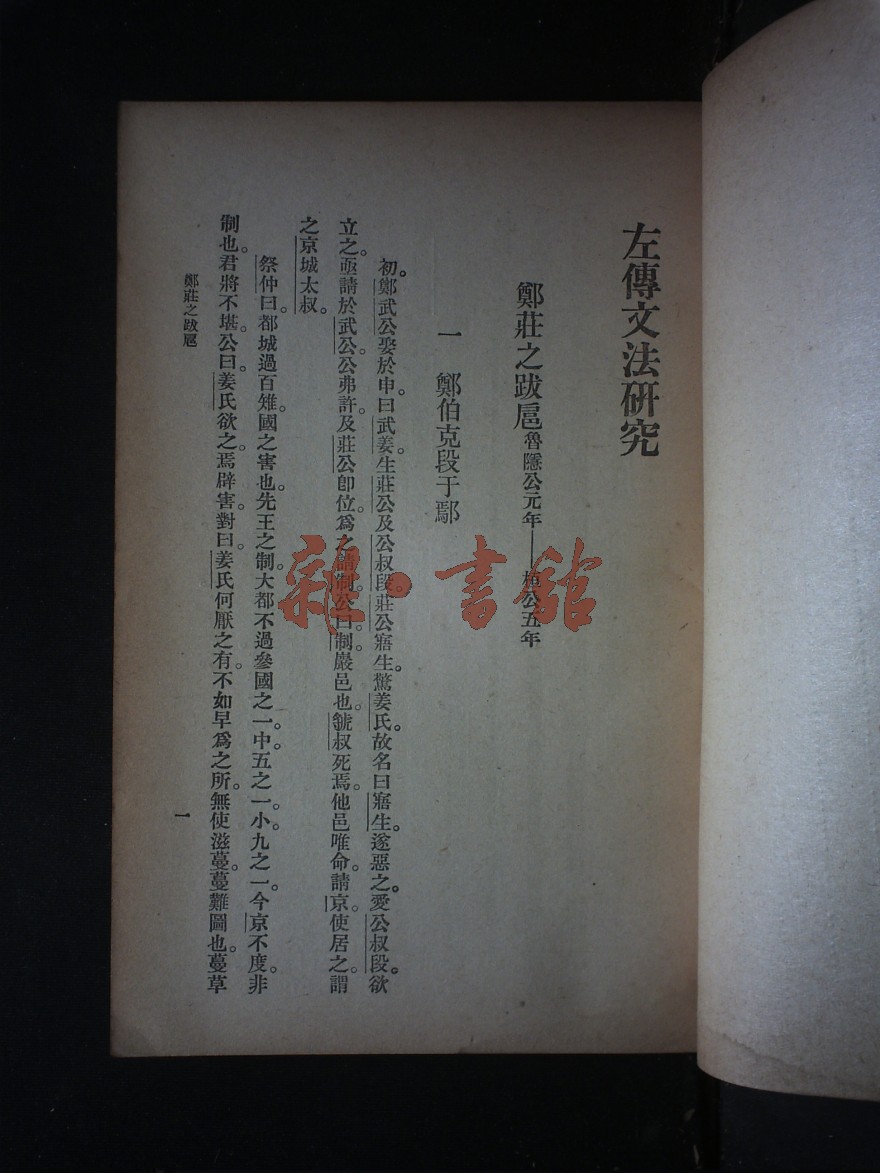 左傳文法研究
鄭莊之跋扈魯隱公元年——桓公五年
一 鄭伯克段于鄢
初。鄭武公娶於申曰武姜。生莊公及公叔段。莊公寤生。驚姜氏。故名曰寤生。遂惡之。愛公叔段。欲
立之。亟請於武公。公弗許。及莊公卽位。爲之請制。公曰。制巖邑也。虢叔死焉。他邑唯命。請京。使居之。謂
之京城太叔。
祭仲曰。都城過百雉。國之害也。先王之制。大都不過參國之一。中。五之一。小。九之一。今京不度。非
制也。君將不堪。公曰。姜氏欲之。焉辟害。對曰。姜氏何厭之有。不如早爲之所。無使滋蔓。蔓難圖也。蔓草
鄭莊之跋扈
一
雜·書館